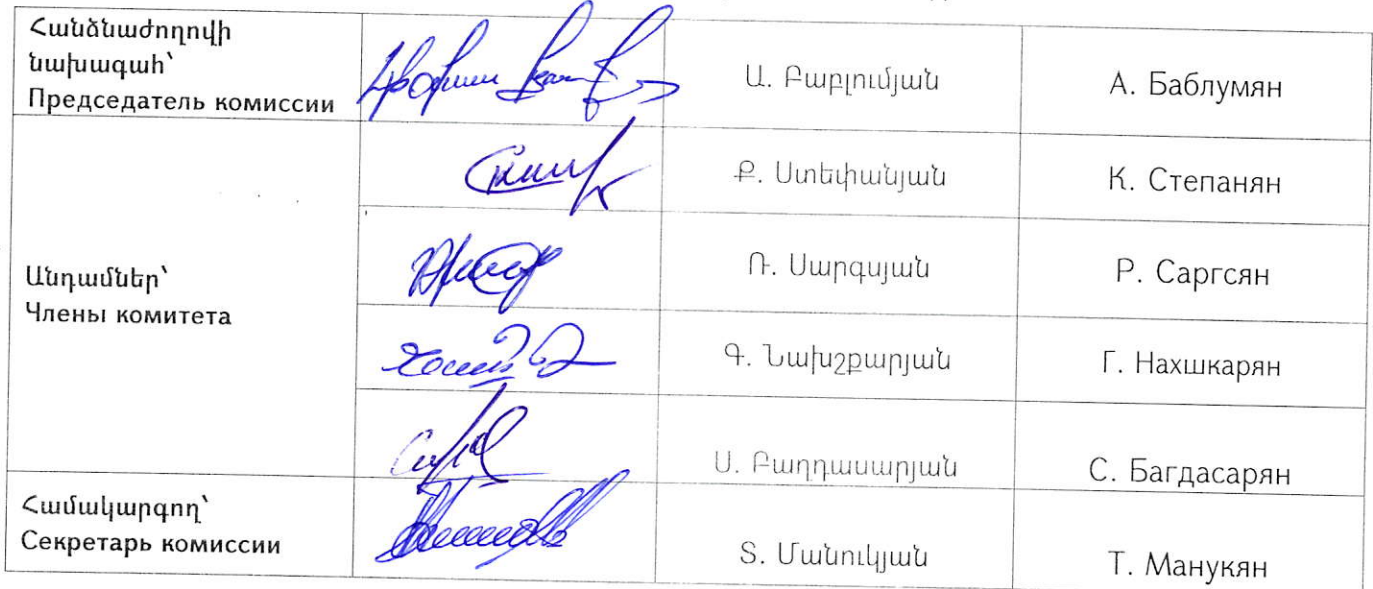 Հանձնաժողովի
նախագահ՝
Председатель комиссии
Ա. Բաբլումյան
А. Баблумян
Անդամներ՝
Члены комитета
Ք. Ստեփանյան
К. Степанян
Ռ. Սարգսյան
Р. Саргсян
Գ. Նախշքարյան
Г. Нахшкарян
Ս. Բաղդասարյան
С. Багдасарян
Համակարգող՝
Секретарь комиссии
Տ. Մանուկյան
Т. Манукян